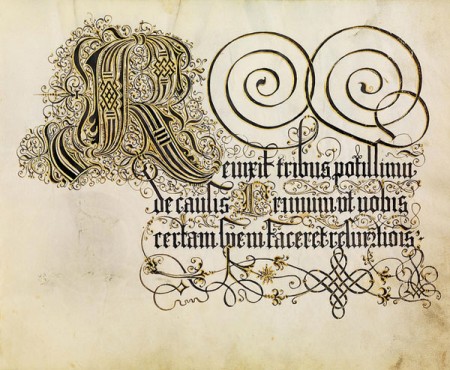 Reuixit tribus potissimū
de causis Primum ut nobis
certam spem faceret resurctiōis